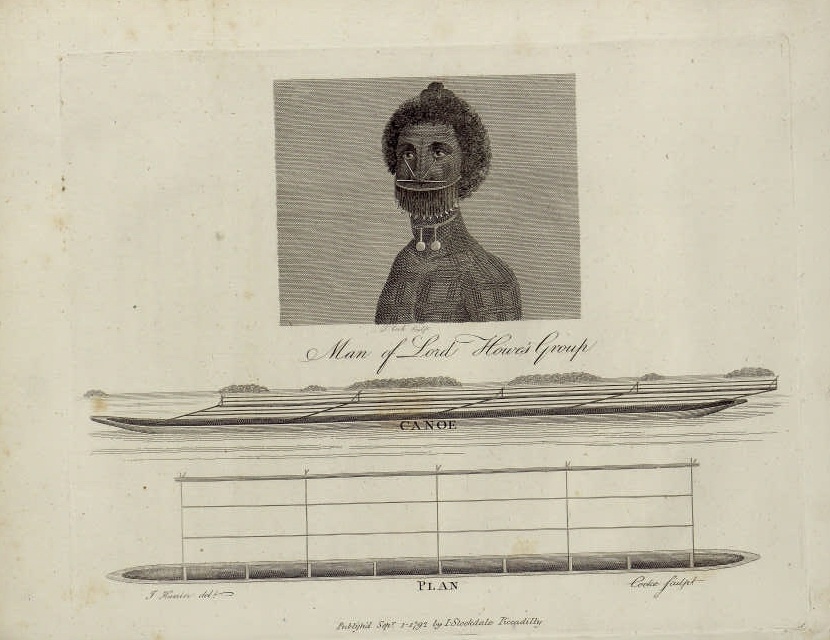 Man of Lord Howe's Group
CANOE
PLAN
J. Hunter delt.
Cooke Sculpt
Publish'd Sepr. 1-1792 by I. Stockdale Piccadilly